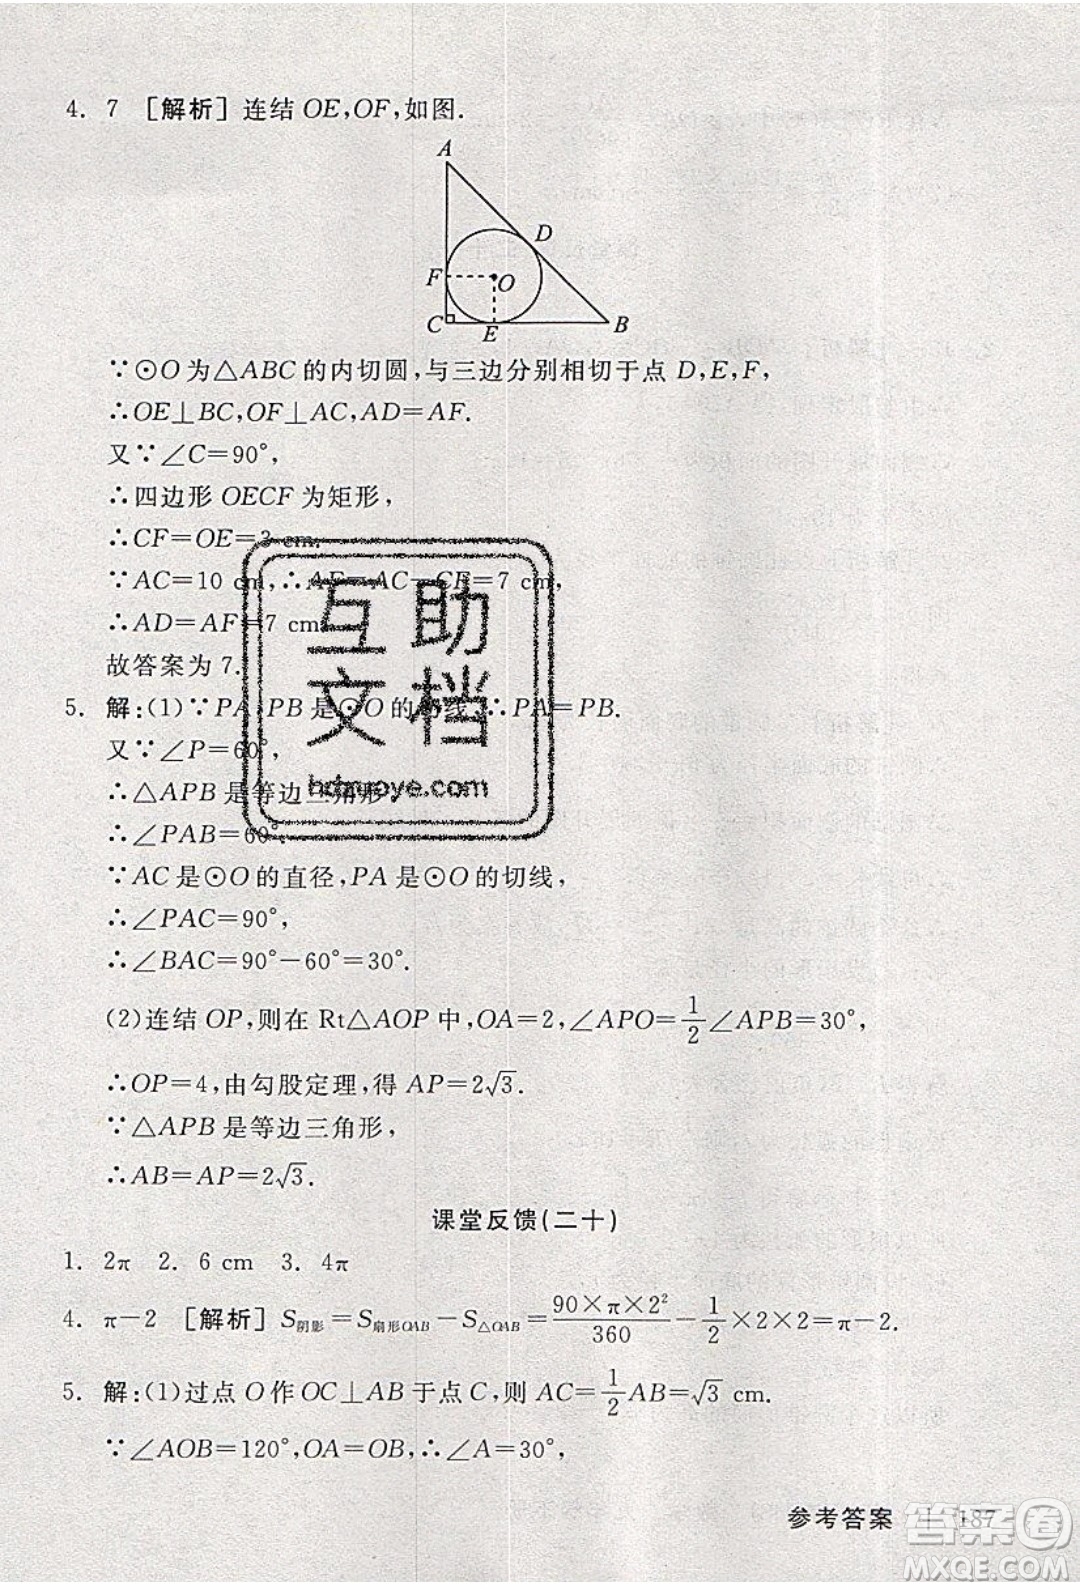 4. 7 [解析] 连结 OE,OF,如图.
A
D
F
O
C
E
B
∵⊙O 为△ABC 的内切圆,与三边分别相切于点 D,E,F,
∴OE⊥BC,OF⊥AC,AD=AF.
又∵∠C=90°,
∴四边形 OECF 为矩形,
∴CF=OE=3 cm.
∵AC=10 cm,∴AF=AC−CF=7 cm,
∴AD=AF=7 cm.
故答案为 7.
5. 解:(1)∵PA,PB 是⊙O 的切线,∴PA=PB.
又∵∠P=60°,
∴△APB 是等边三角形,
∴∠PAB=60°.
∵AC 是⊙O 的直径,PA 是⊙O 的切线,
∴∠PAC=90°,
∴∠BAC=90°−60°=30°.
(2)连结 OP,则在 Rt△AOP 中,OA=2,∠APO=1/2∠APB=30°,
∴OP=4,由勾股定理,得 AP=2√3.
∵△APB 是等边三角形,
∴AB=AP=2√3.
课堂反馈(二十)
1. 2π 2. 6 cm 3. 4π
4. π−2 [解析] S阴影=S扇形OAB−S△OAB=90×π×2²/360−1/2×2×2=π−2.
5. 解:(1)过点 O 作 OC⊥AB 于点 C,则 AC=1/2AB=√3 cm.
∵∠AOB=120°,OA=OB,∴∠A=30°,
参考答案 | 187
互助
文档
hdzuoye.com
答案圈
MXQE.COM